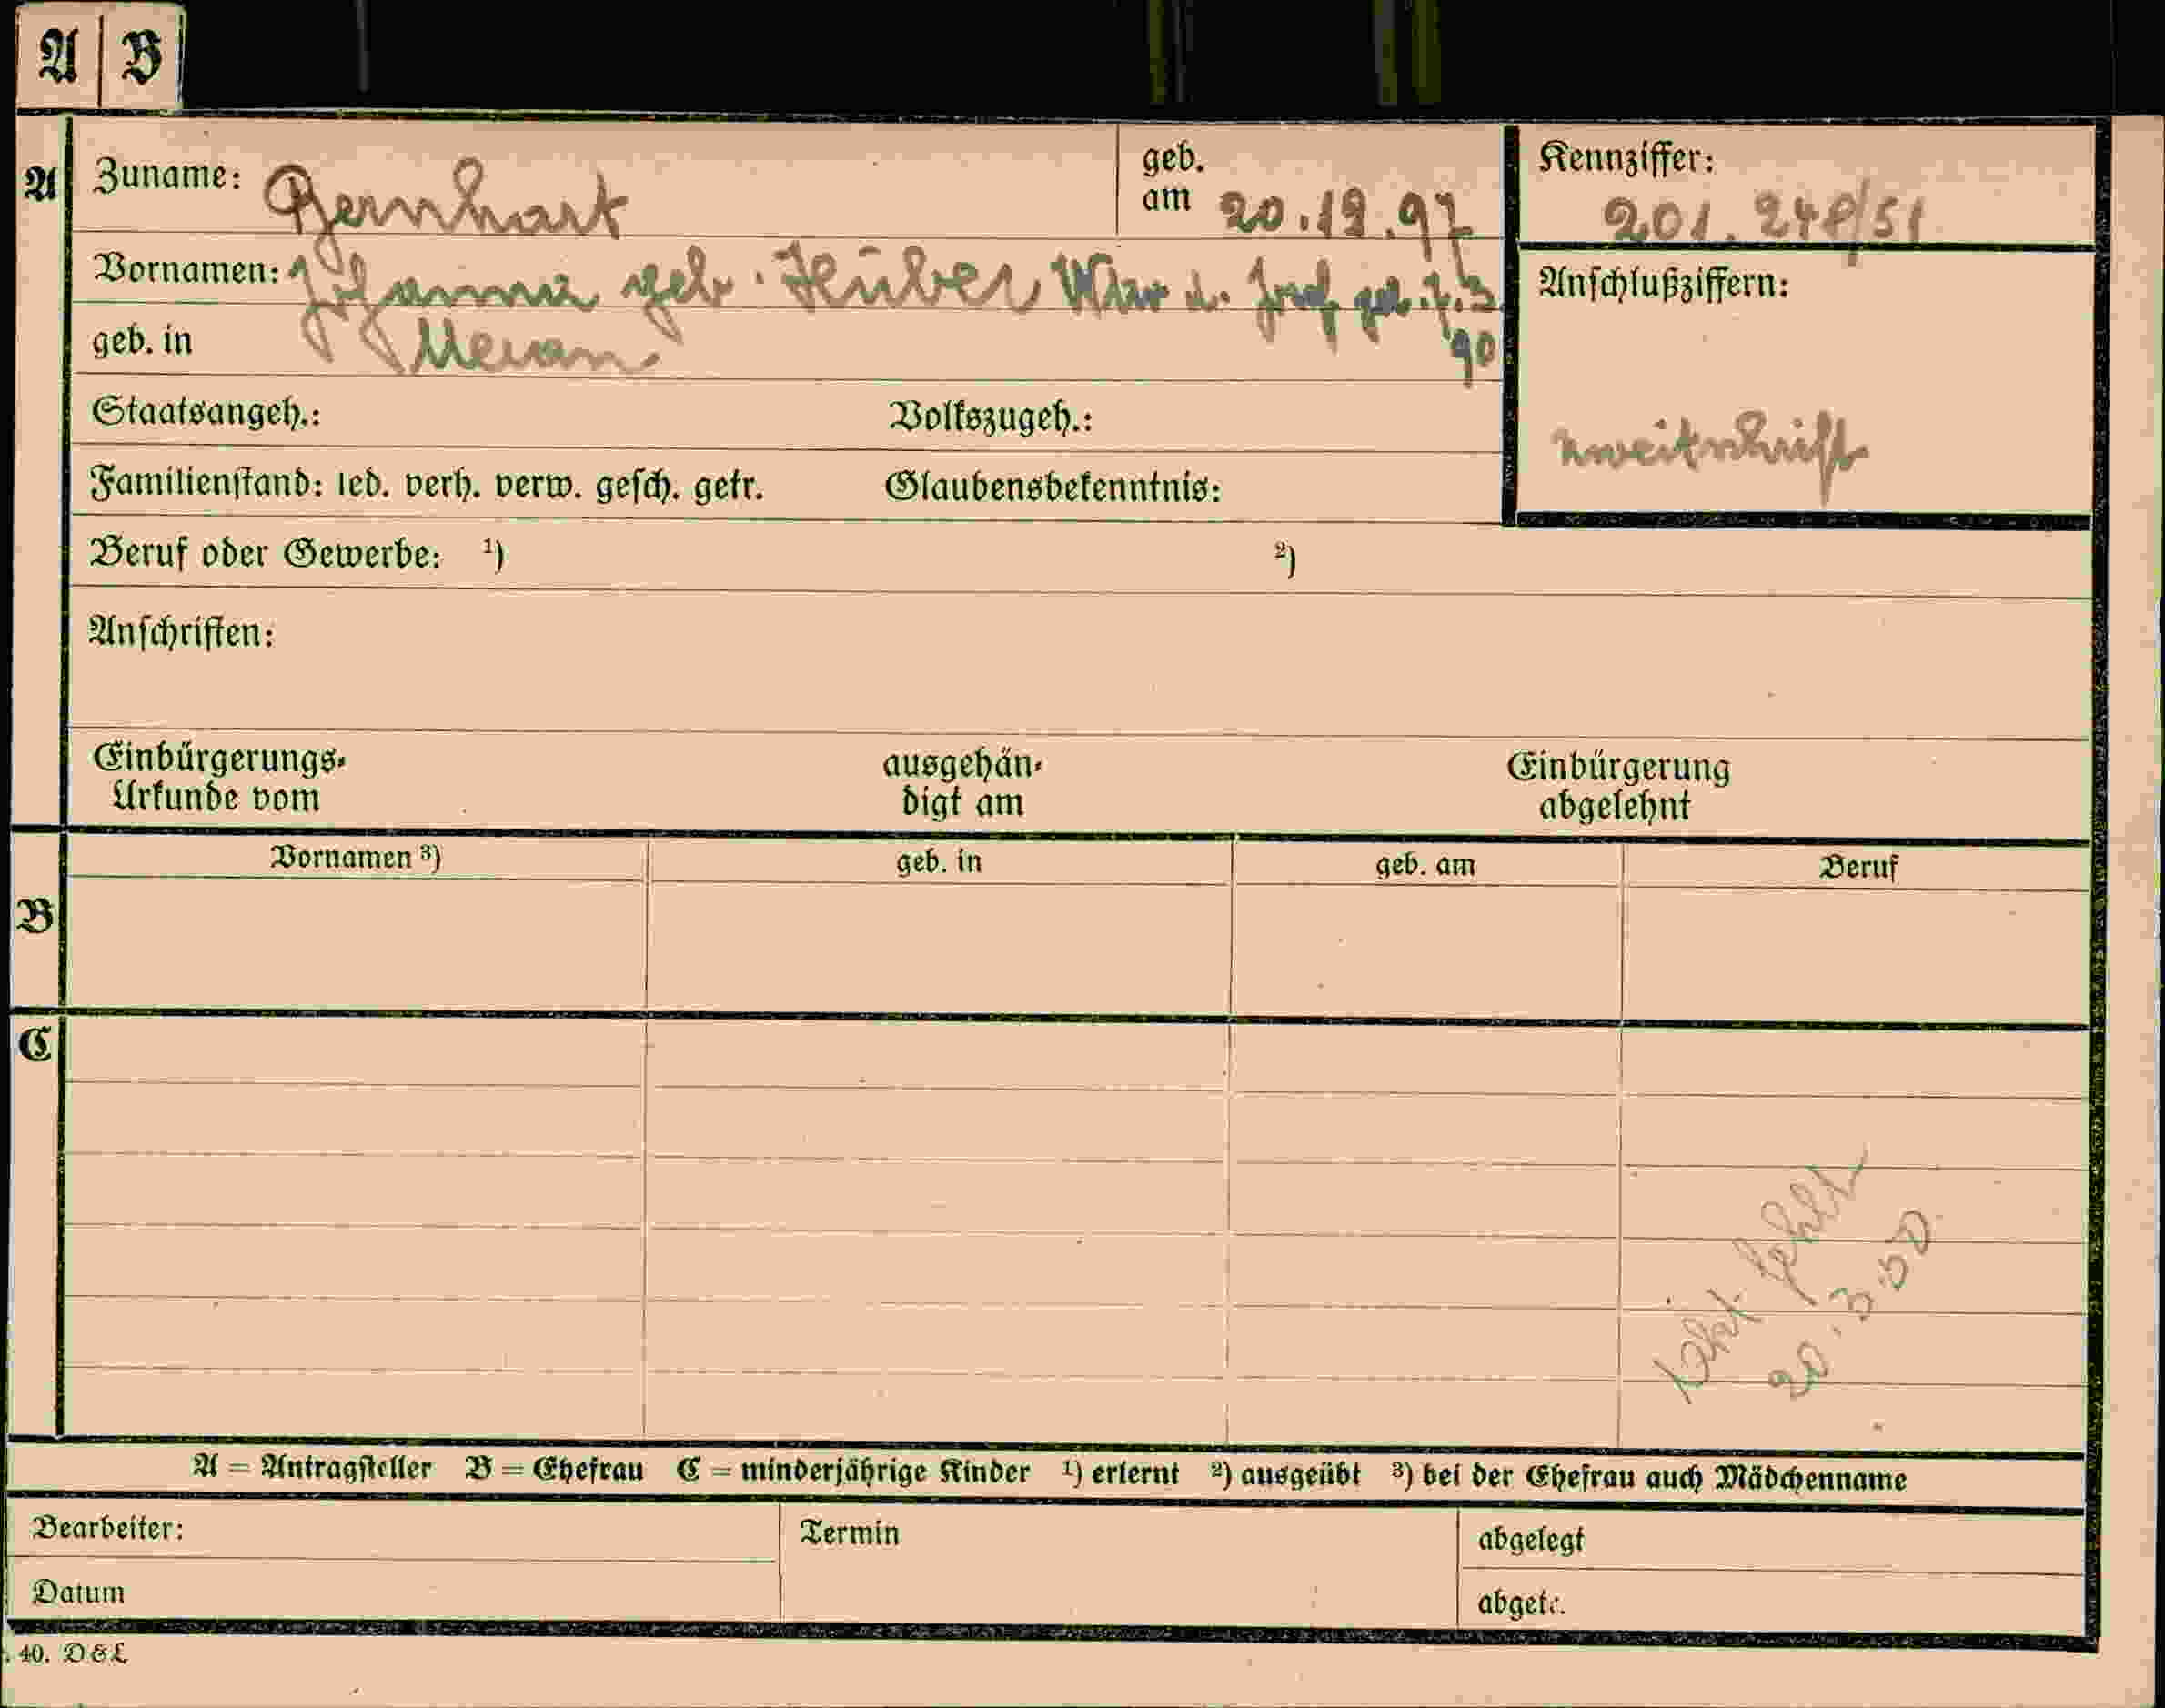 A B
A Zuname: Gernhart geb. am 20.12.97 Kennziffer: 201.248/51
Vornamen: Johanna geb. Huber Wtw d. Josef geb. 7.3. 90 Anschlußziffern:
geb. in Meran
Staatsangeh.: Volkszugeh.: Zweitschrift
Familienstand: led. verh. verw. gesch. getr. Glaubensbekenntnis:
Beruf oder Gewerbe: ¹) ²)
Anschriften:
Einbürgerungs- ausgehän- Einbürgerung
Urkunde vom digt am abgelehnt
Vornamen ³) geb. in geb. am Beruf
B
C
fehlt
20.3.50
A = Antragsteller B = Ehefrau C = minderjährige Kinder ¹) erlernt ²) ausgeübt ³) bei der Ehefrau auch Mädchenname
Bearbeiter: Termin abgelegt
Datum abgetr.
. 40. D&L